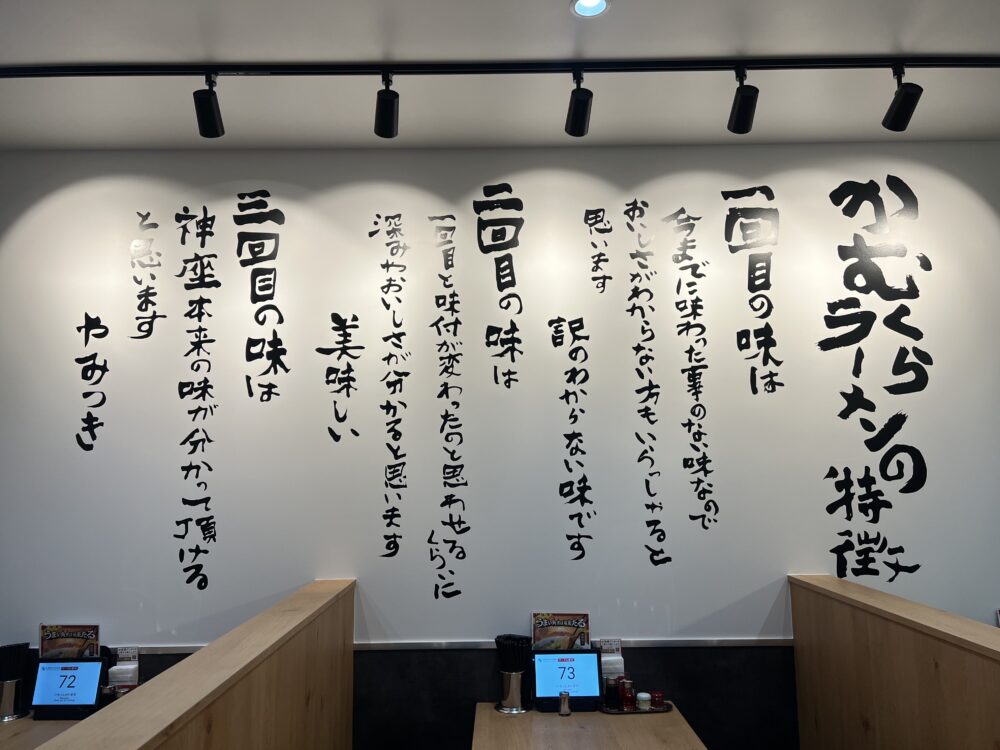 かむくら
ラーメンの
特徴
一回目の味は
今までに味わった事のない味なので
おいしさがわからない方もいらっしゃると
思います
訳のわからない味です
二回目の味は
一回目と味付が変わったのと思わせる
くらいに
深みわおいしさが分かると思います
美味しい
三回目の味は
神座本来の味が分かって頂ける
と思います
やみつき
72
73